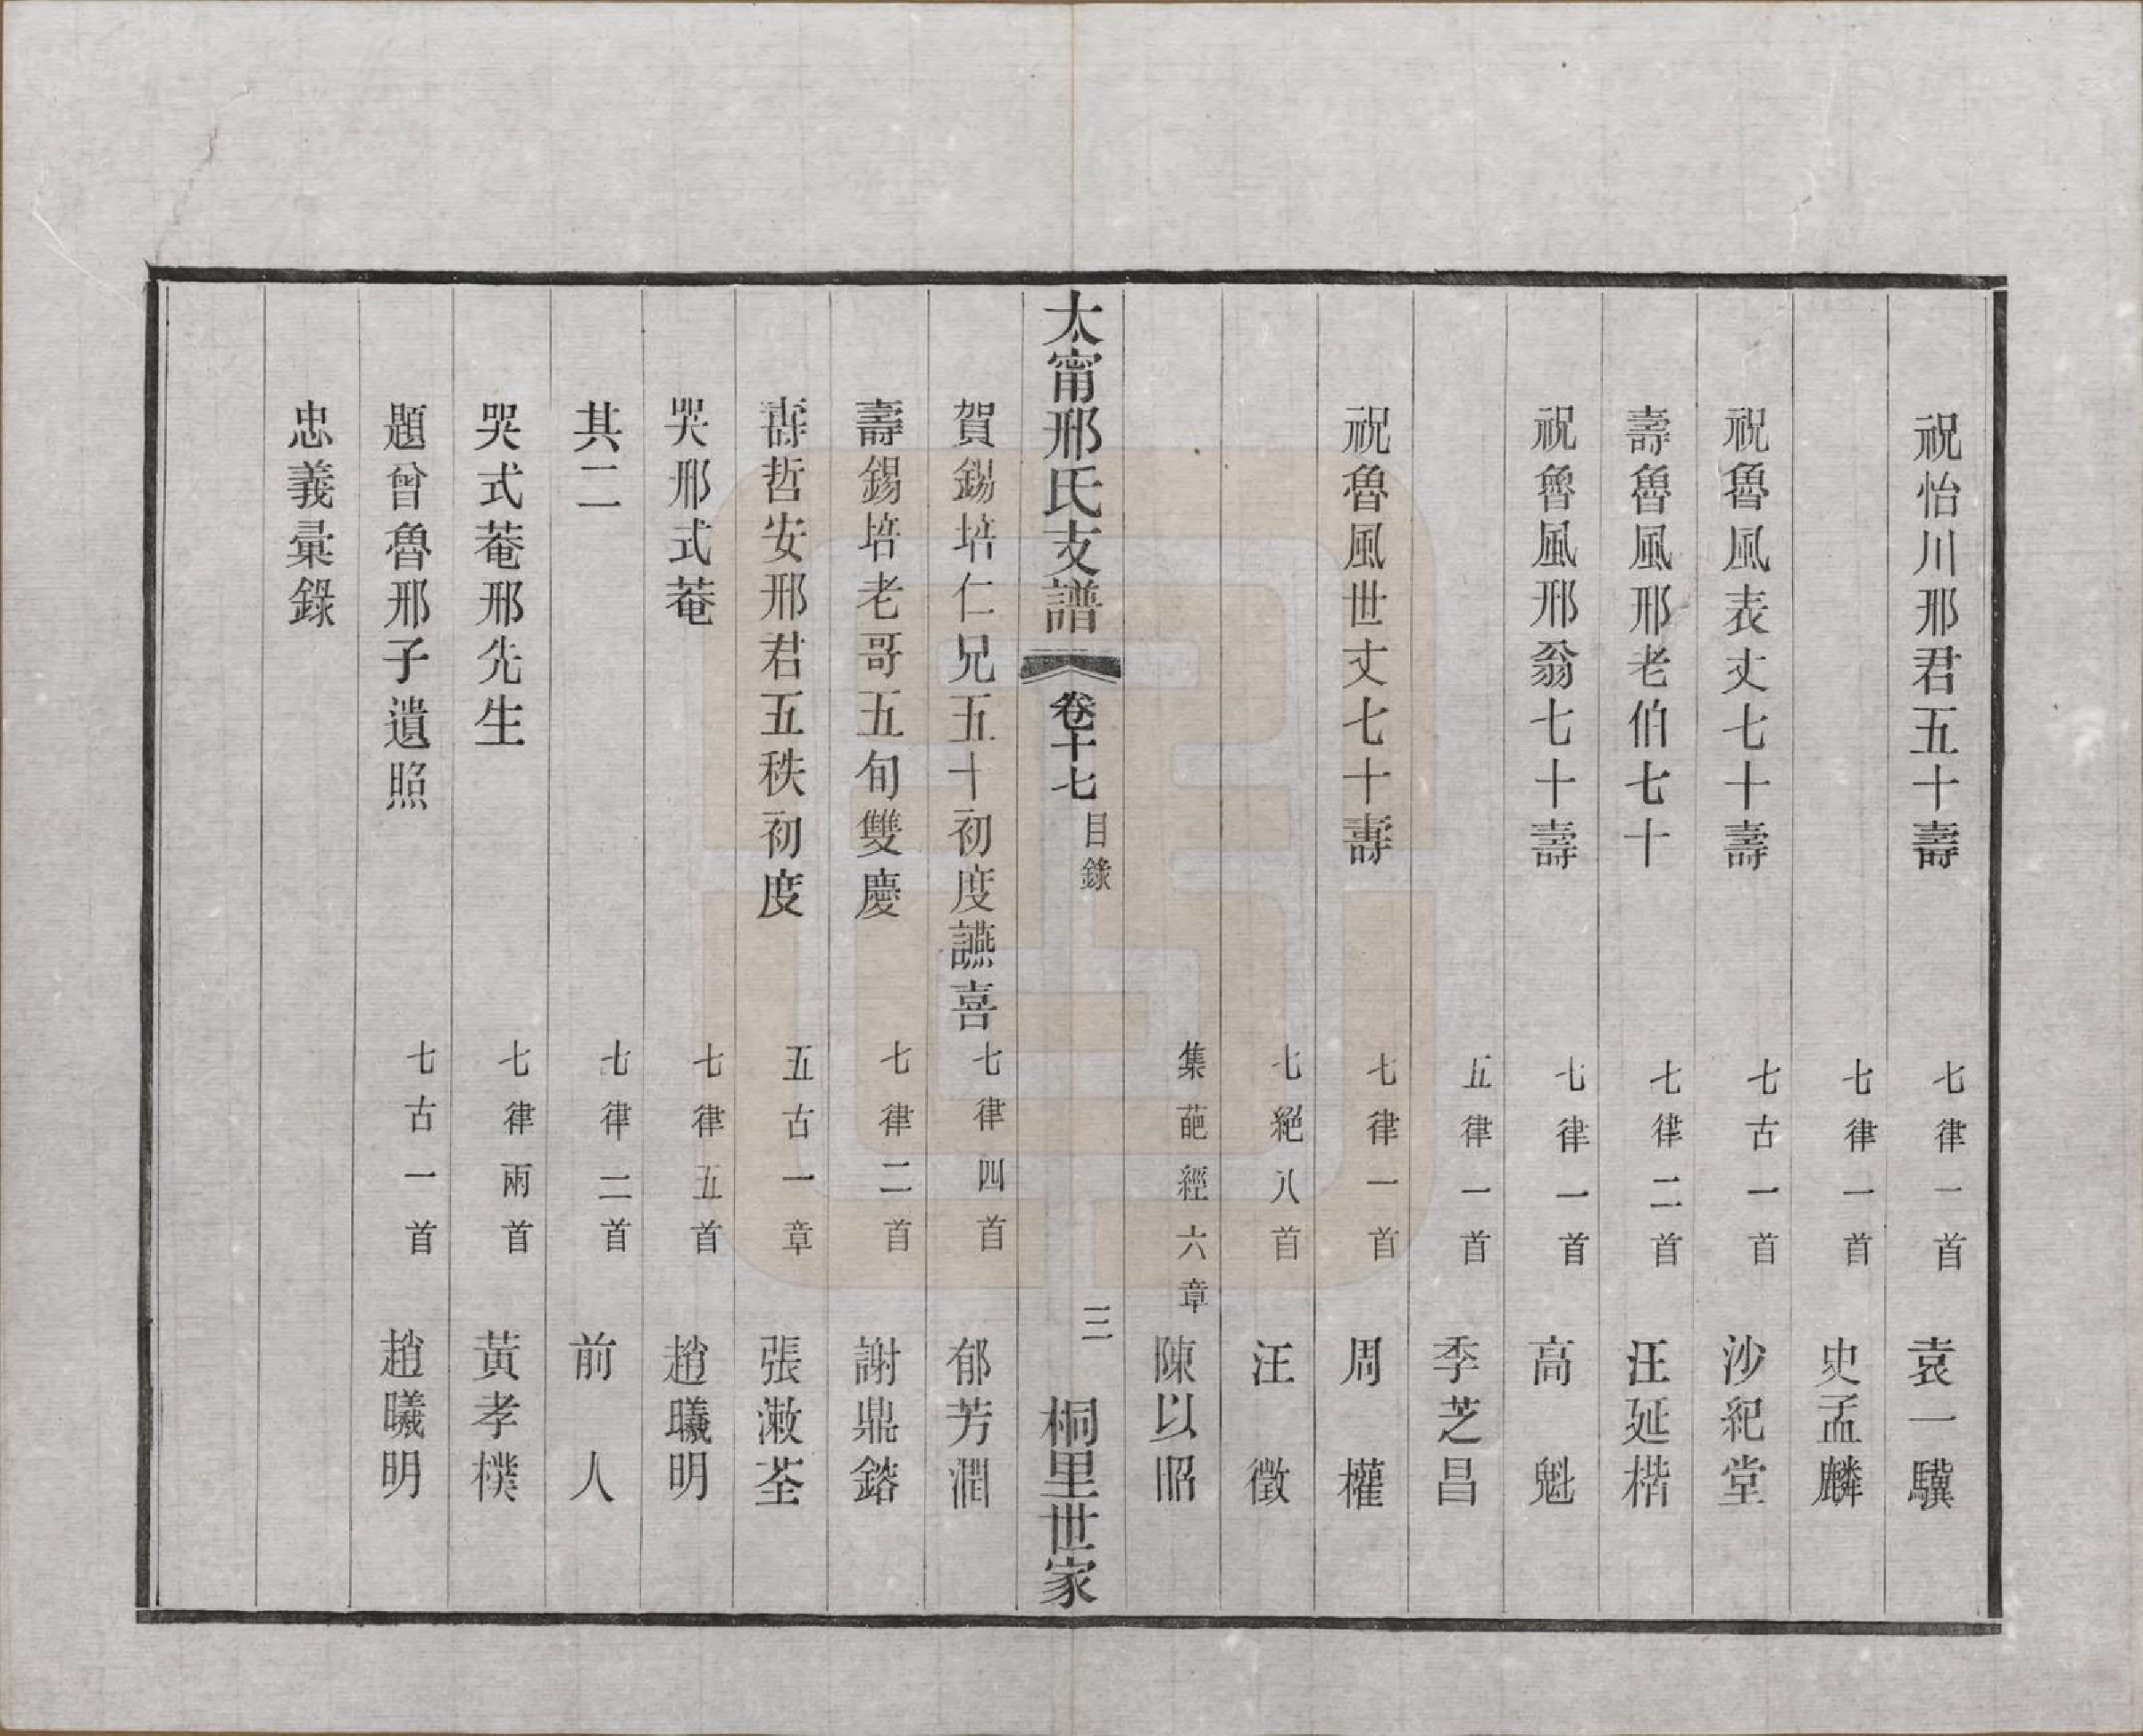 祝怡川邢君五十壽 七律一首 袁一驥
七律一首 史孟麟
祝魯風表丈七十壽 七古一首 沙紀堂
壽魯風邢老伯七十 七律二首 汪延楷
祝魯風邢翁七十壽 七律一首 高魁
五律一首 季芝昌
祝魯風世丈七十壽 七律一首 周權
七絕八首 汪徵
集葩經六章 陳以昭
太甯邢氏支譜 卷十七 目錄 三 桐里世家
賀錫培仁兄五十初度讌喜 七律四首 郁芳潤
壽錫培老哥五旬雙慶 七律二首 謝鼎鎔
壽哲安邢君五秩初度 五古一章 張漱荃
哭邢式菴 七律五首 趙曦明
其二 七律二首 前人
哭式菴邢先生 七律兩首 黃孝樸
題曾魯邢子遺照 七古一首 趙曦明
忠義彙錄